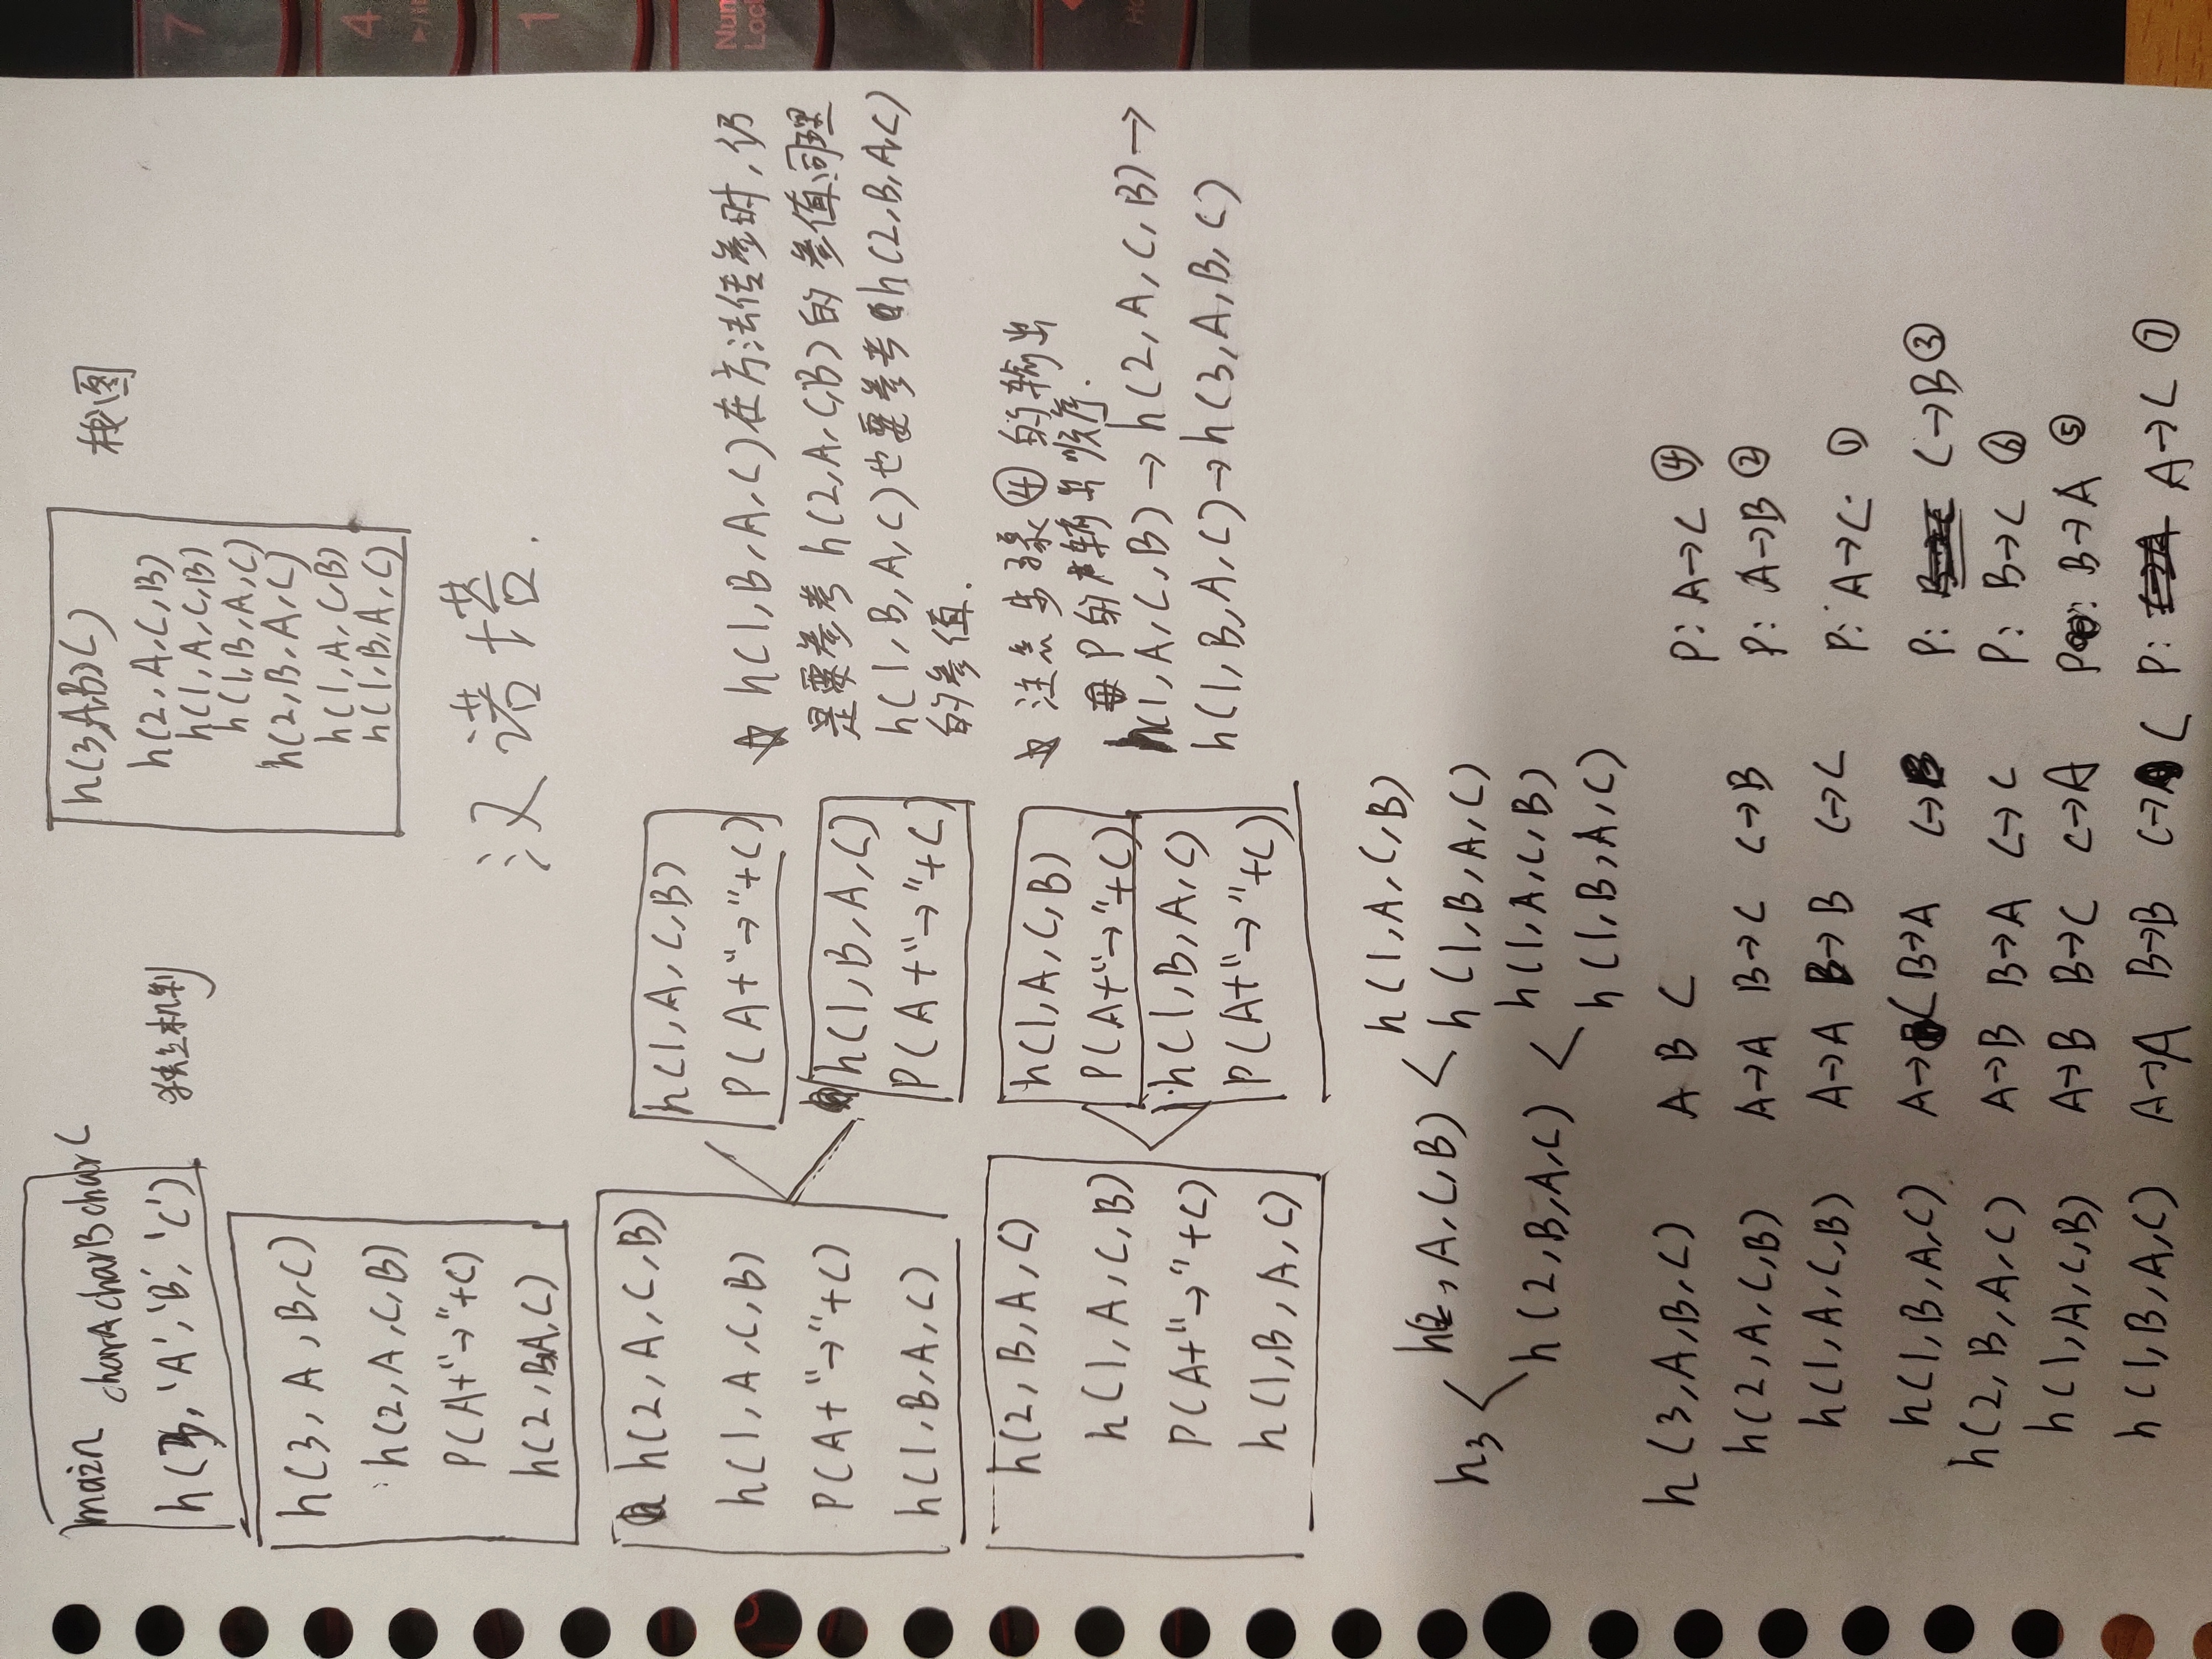 main charA charB charC
h(3, 'A', 'B', 'C')
独立机制
h(3, A, B, C)
h(2, A, C, B)
P(A+"→"+C)
h(2, B, A, C)
h(3, A, B, C)
h(2, A, C, B)
h(1, A, C, B)
h(1, B, A, C)
h(2, B, A, C)
h(1, A, C, B)
h(1, B, A, C)
栈图
汉诺塔.
h(2, A, C, B)
h(1, A, C, B)
P(A+"→"+C)
h(1, B, A, C)
h(1, A, C, B)
P(A+"→"+C)
h(1, B, A, C)
P(A+"→"+C)
☆ h(1, B, A, C)在方法传参时,仍
是要参考 h(2, A, C, B) 的 参值,同理
h(1, B, A, C)也要参考 h(2, B, A, C)
的参值.
h(2, B, A, C)
h(1, A, C, B)
P(A+"→"+C)
h(1, B, A, C)
h(1, A, C, B)
P(A+"→"+C)
h(1, B, A, C)
P(A+"→"+C)
☆ 注意步骤④的输出
P的输出顺序.
h(1, A, C, B)→h(2, A, C, B)→
h(1, B, A, C)→h(3, A, B, C)
h3
h(2, A, C, B)
h(1, A, C, B)
h(1, B, A, C)
h(2, B, A, C)
h(1, A, C, B)
h(1, B, A, C)
h(3, A, B, C) A B C P: A→C ④
h(2, A, C, B) A→A B→C C→B P: A→B ②
h(1, A, C, B) A→A B→B C→C P: A→C ①
h(1, B, A, C) A→C B→A C→B P: C→B ③
h(2, B, A, C) A→B B→A C→C P: B→C ⑥
h(1, A, C, B) A→B B→C C→A P: B→A ⑤
h(1, B, A, C) A→A B→B C→C P: A→C ⑦
7
4
1
Num
Loc